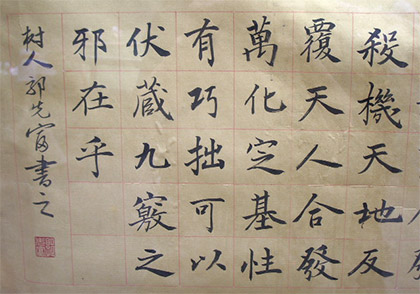 殺機天地反
覆天人合發
萬化定基性
有巧拙可以
伏藏九竅之
邪在乎
树人郭先富書之